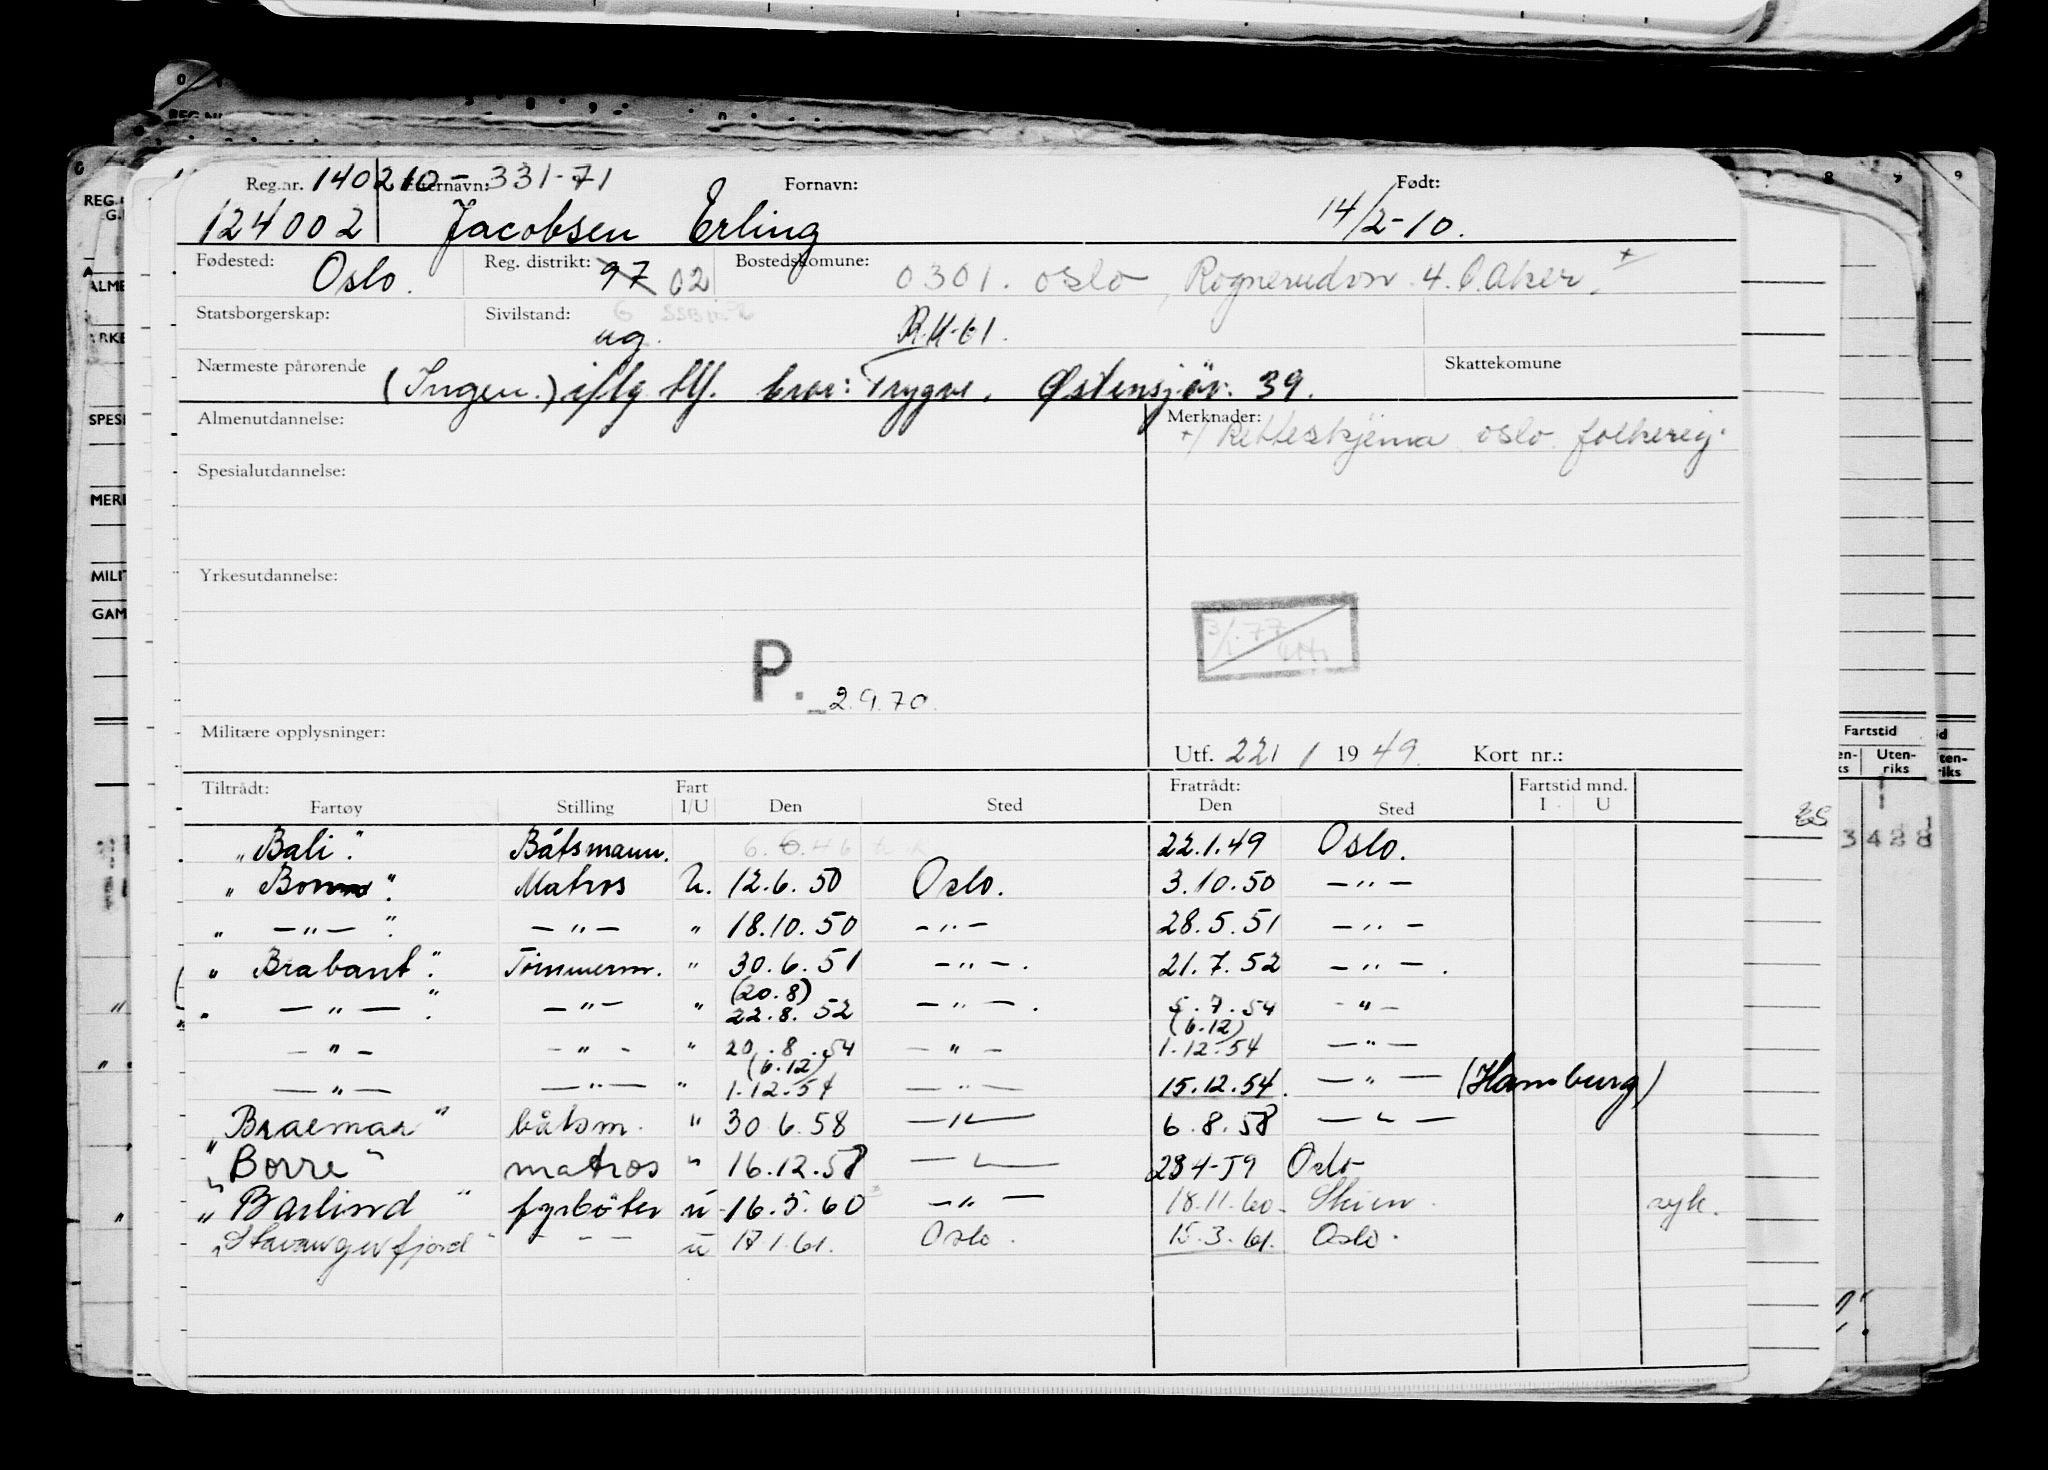 Reg.nr. 140210-331-71 Etternavn: Fornavn: Født:
124002 Jacobsen Erling 14/2-10.
Fødested: Oslo. Reg. distrikt: 97 02 Bostedskomune: 0301. oslo, Rognerudvn. 4. Ø.Aker. +
Statsborgerskap: Sivilstand: ug. R.U-61.
Nærmeste pårørende (Ingen.) iflg. tlf. bror: Trygve. Østensjöv: 39. Skattekomune
Almenutdannelse: Merknader:
+/ Retteskjema oslo folkereg.
Spesialutdannelse:
Yrkesutdannelse:
3/1.77
P. 2.9.70.
Militære opplysninger: Utf. 22/1 / 1949. Kort nr.:
Tiltrådt: Fart Fratrådt: Fartstid mnd.
Fartøy Stilling I/U Den Sted Den Sted I U
"Bali". Båtsmann. 6.6.46 22.1.49 Oslo.
"Bonn". Matros U. 12.6.50 Oslo. 3.10.50 —"—
" —"— ". —"— " 18.10.50 —"— 28.5.51 —"—
"Brabant". Tömmerm. " 30.6.51 —"—. 21.7.52 —"—.
(20.8)
" —"— ". —"— " 22.8.52 —"—. 5.7.54 —"—
(6.12)
—"— —"— " 20.8.54 —"— 1.12.54 —"—
(6.12)
—"— —"— " 1.12.54 —"— 15.12.54. —"— (Hamburg)
"Braemar" båtsm. " 30.6.58 —"— 6.8.58 —"—
"Borre" matros " 16.12.58 —"— 28 4-59 Oslo
"Barlind" fyrböter u 16.5.60 —"— 18.11.60. Skien. syk.
"Stavangerfjord" - - - u 17.1.61. Oslo. 15.3.61. Oslo.
Fartstid
Uten-
riks
3428